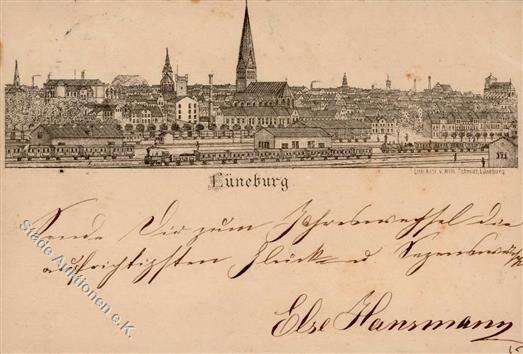 Lith. Anst. v. Wilh. Schmidt, Lüneburg
Lüneburg
Sende Dir zum Jahreswechsel die
aufrichtigsten Glück- u Segenswünsche
Else Hansmann
Stade Auktionen e.K.